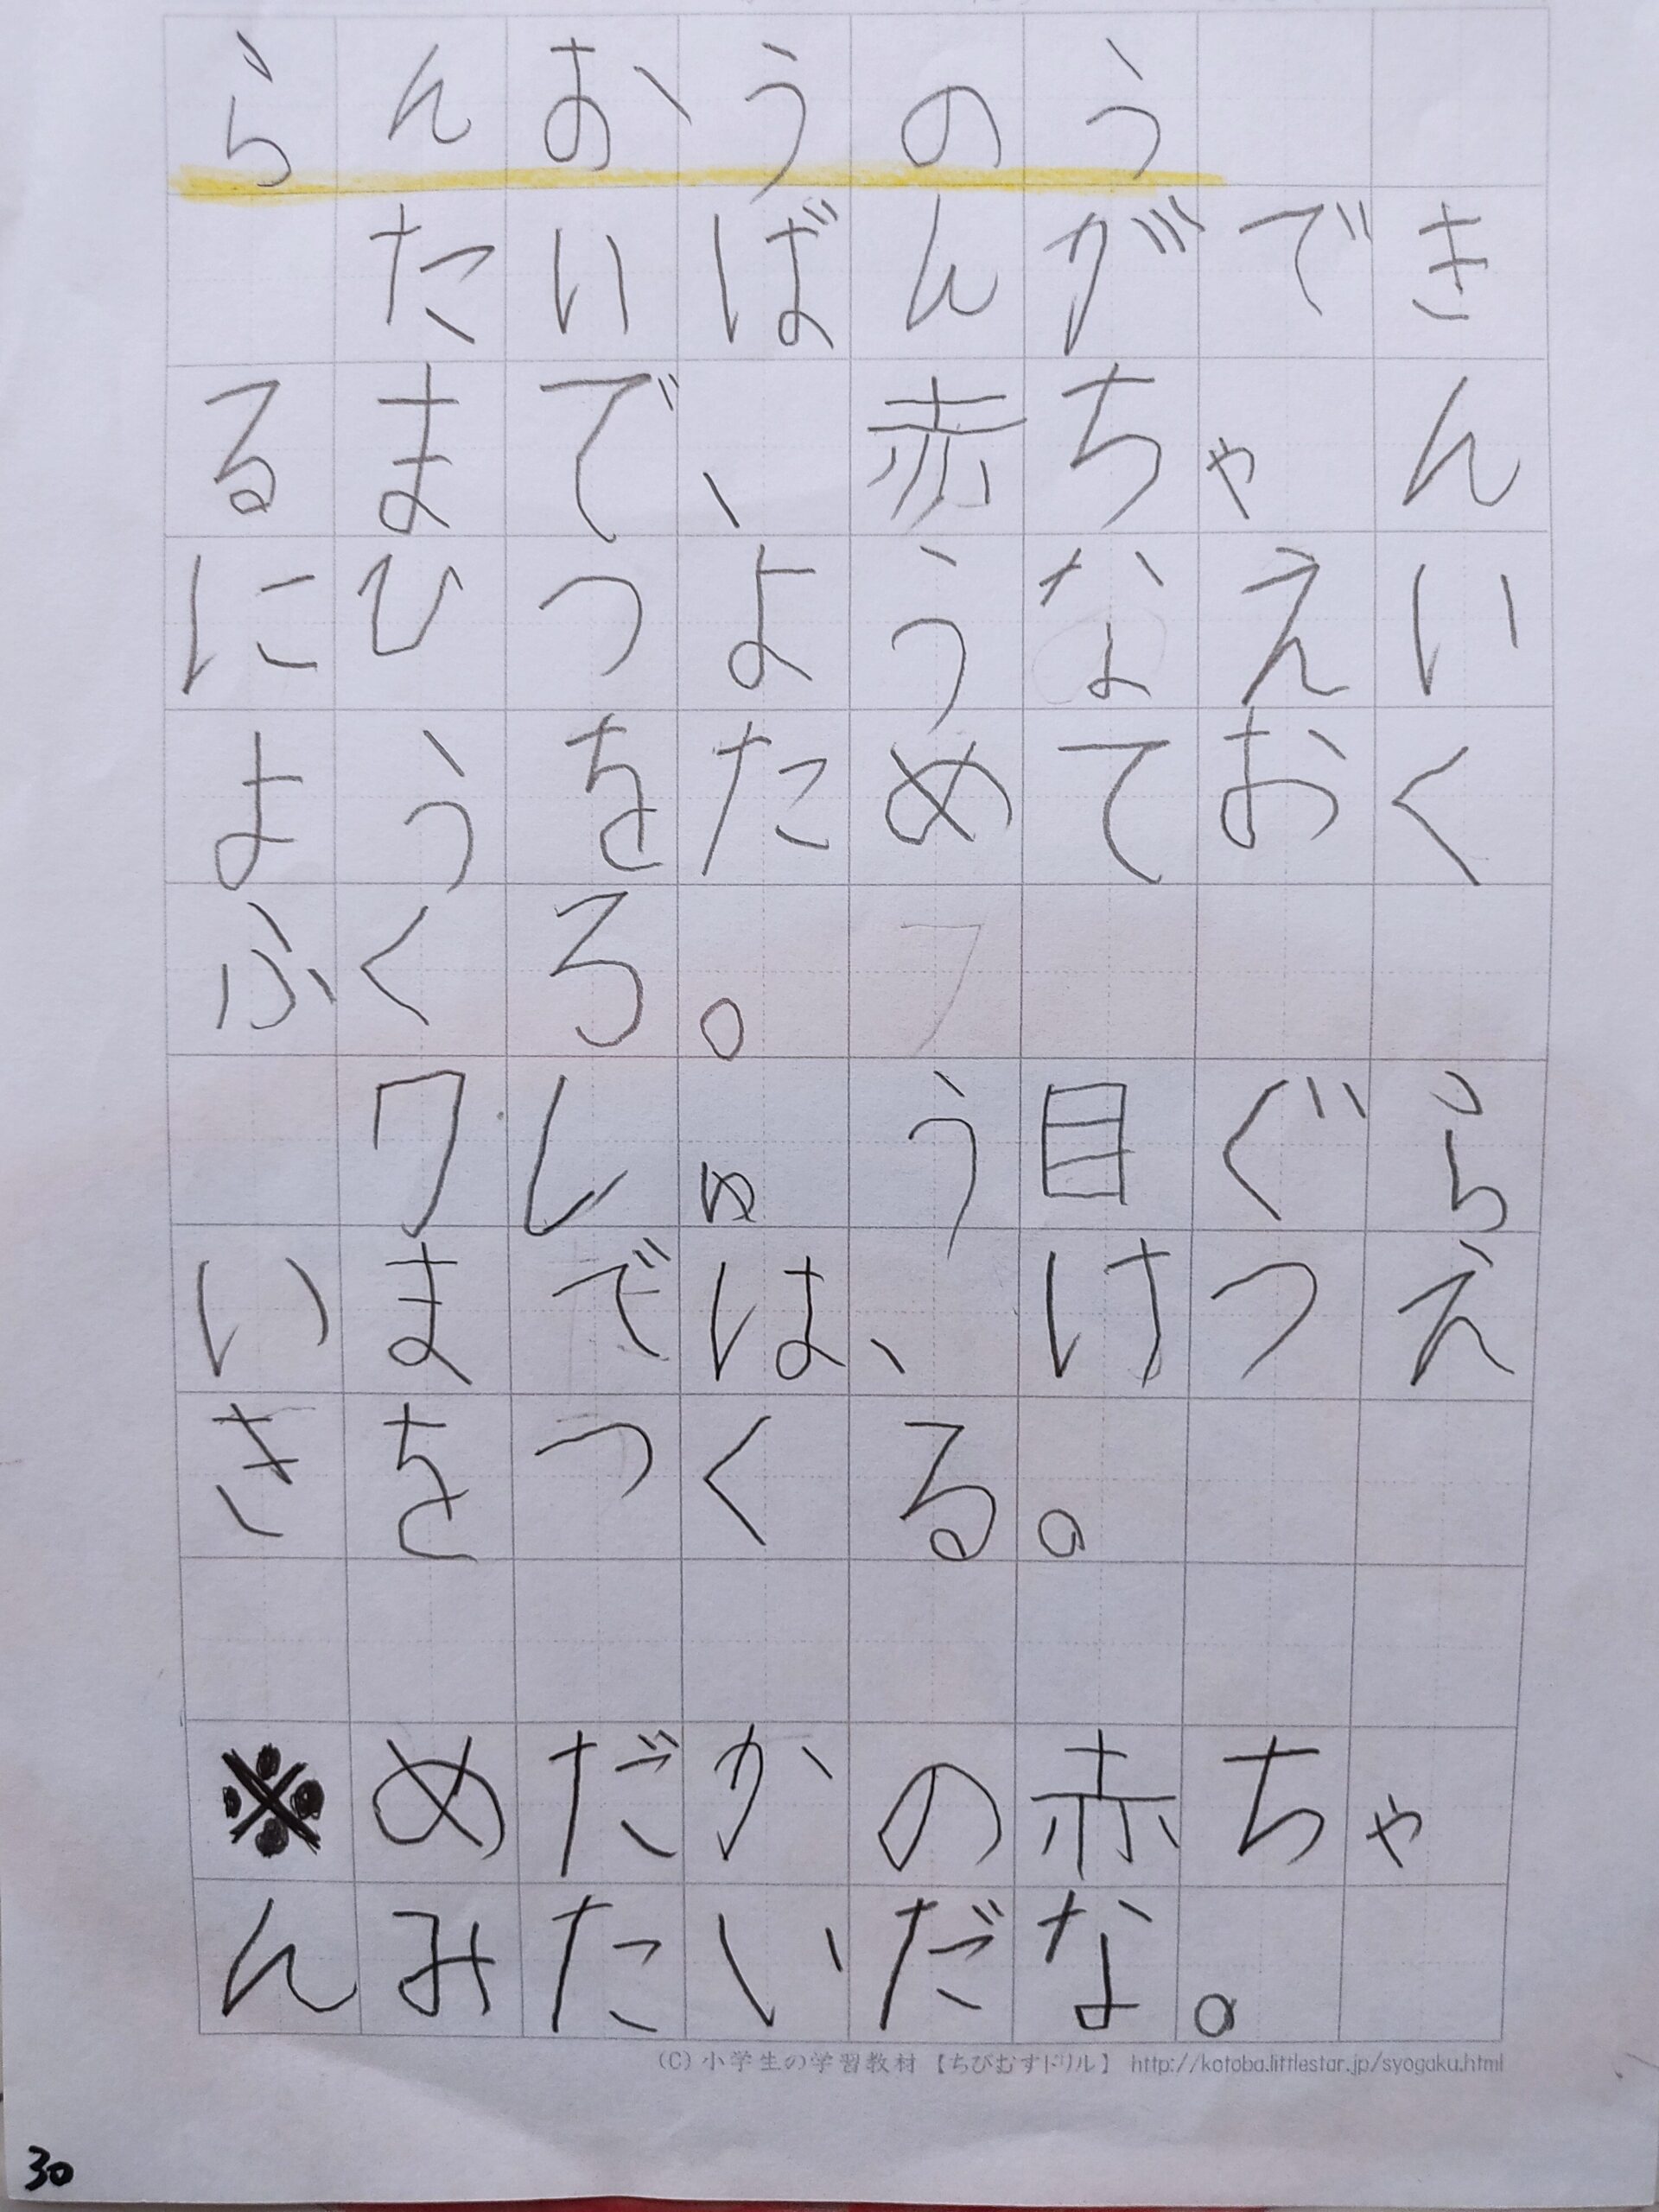 らんおうのう
たいばんができ
るまで、赤ちゃん
にひつような えい
ようをためておく
ふくろ。
7しゅう目ぐら
いまでは、けつえ
きをつくる。
※めだかの赤ちゃ
んみたいだな。
(C) 小学生の学習教材【ちびむすドリル】 http://kotoba.littlestar.jp/syogaku.html
30